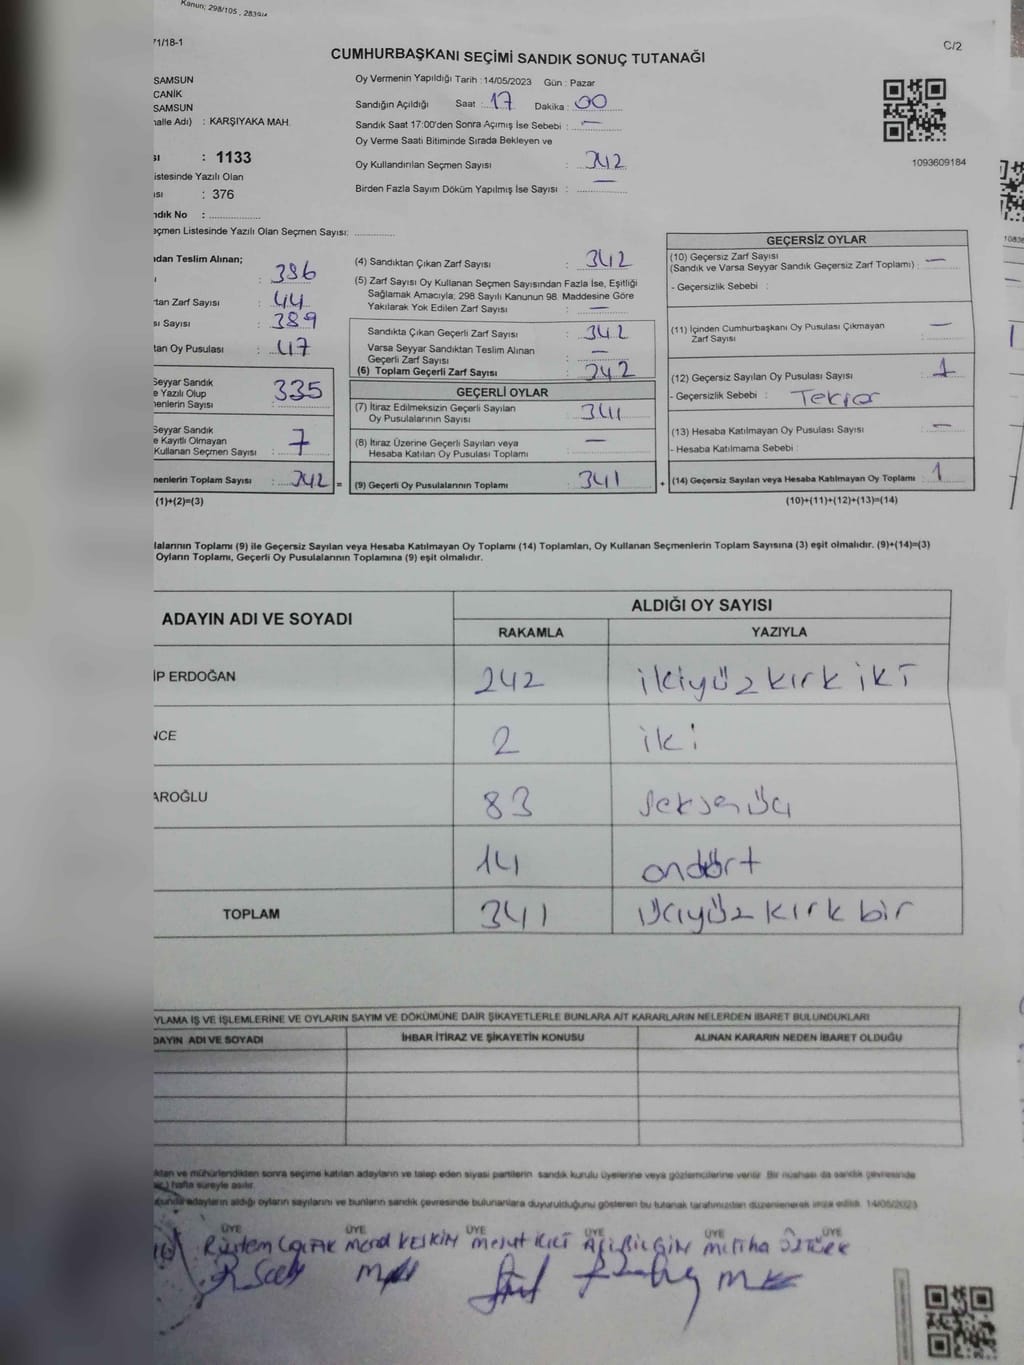 Kanun; 298/105 , 283914
71/18-1
C/2
CUMHURBAŞKANI SEÇİMİ SANDIK SONUÇ TUTANAĞI
SAMSUN
CANİK
SAMSUN
halle Adı) : KARŞIYAKA MAH.
sı : 1133
istesinde Yazılı Olan
ısı : 376
ndık No :
eçmen Listesinde Yazılı Olan Seçmen Sayısı:
Oy Vermenin Yapıldığı Tarih : 14/05/2023 Gün : Pazar
Sandığın Açıldığı Saat : 17 Dakika : 00
Sandık Saat 17:00'den Sonra Açımış İse Sebebi : —
Oy Verme Saati Bitiminde Sırada Bekleyen ve
Oy Kullandırılan Seçmen Sayısı : 342
Birden Fazla Sayım Döküm Yapılmış İse Sayısı : —
1093609184
ından Teslim Alınan;
: 386
rtan Zarf Sayısı : 44
sı Sayısı : 389
tan Oy Pusulası : 47
Seyyar Sandık
e Yazılı Olup
nenlerin Sayısı : 335
Seyyar Sandık
e Kayıtlı Olmayan
Kullanan Seçmen Sayısı : 7
menlerin Toplam Sayısı : 342 =
(1)+(2)=(3)
(4) Sandıktan Çıkan Zarf Sayısı : 342
(5) Zarf Sayısı Oy Kullanan Seçmen Sayısından Fazla İse, Eşitliği
Sağlamak Amacıyla; 298 Sayılı Kanunun 98. Maddesine Göre
Yakılarak Yok Edilen Zarf Sayısı : —
Sandıkta Çıkan Geçerli Zarf Sayısı : 342
Varsa Seyyar Sandıktan Teslim Alınan
Geçerli Zarf Sayısı : —
(6) Toplam Geçerli Zarf Sayısı : 342
GEÇERLİ OYLAR
(7) İtiraz Edilmeksizin Geçerli Sayılan
Oy Pusulalarının Sayısı : 341
(8) İtiraz Üzerine Geçerli Sayılan veya
Hesaba Katılan Oy Pusulası Toplamı : —
(9) Geçerli Oy Pusulalarının Toplamı : 341 +
GEÇERSİZ OYLAR
(10) Geçersiz Zarf Sayısı
(Sandık ve Varsa Seyyar Sandık Geçersiz Zarf Toplamı) : —
- Geçersizlik Sebebi :
(11) İçinden Cumhurbaşkanı Oy Pusulası Çıkmayan
Zarf Sayısı : —
(12) Geçersiz Sayılan Oy Pusulası Sayısı : 1
- Geçersizlik Sebebi :
(13) Hesaba Katılmayan Oy Pusulası Sayısı : —
- Hesaba Katılmama Sebebi :
(14) Geçersiz Sayılan veya Hesaba Katılmayan Oy Toplamı : 1
(10)+(11)+(12)+(13)=(14)
lalarının Toplamı (9) ile Geçersiz Sayılan veya Hesaba Katılmayan Oy Toplamı (14) Toplamları, Oy Kullanan Seçmenlerin Toplam Sayısına (3) eşit olmalıdır. (9)+(14)=(3)
Oyların Toplamı, Geçerli Oy Pusulalarının Toplamına (9) eşit olmalıdır.
ADAYIN ADI VE SOYADI
ALDIĞI OY SAYISI
RAKAMLA YAZIYLA
İP ERDOĞAN 242 ikiyüzkırk iki
NCE 2 iki
AROĞLU 83 seksenüç
14 ondört
TOPLAM 341 üçyüzkırk bir
YLAMA İŞ VE İŞLEMLERİNE VE OYLARIN SAYIM VE DÖKÜMÜNE DAİR ŞİKAYETLERLE BUNLARA AİT KARARLARIN NELERDEN İBARET BULUNDUKLARI
DAYIN ADI VE SOYADI İHBAR İTİRAZ VE ŞİKAYETİN KONUSU ALINAN KARARIN NEDEN İBARET OLDUĞU
ktan ve mühürlendikten sonra seçime katılan adayların ve talep eden siyasi partilerin sandık kurulu üyelerine veya gözlemcilerine verilir. Bir nüshası da sandık çevresinde
) hafta süreyle asılır.
adayların aldığı oyların sayılarını ve bunların sandık çevresinde bulunanlara duyurulduğunu gösteren bu tutanak tarafımızdan düzenlenerek imza edildi. 14/05/2023
ÜYE ÜYE ÜYE ÜYE ÜYE ÜYE
Rüstem Meral KESKİN Mesut Ali BİLGİN Meliha ÖZTÜRK